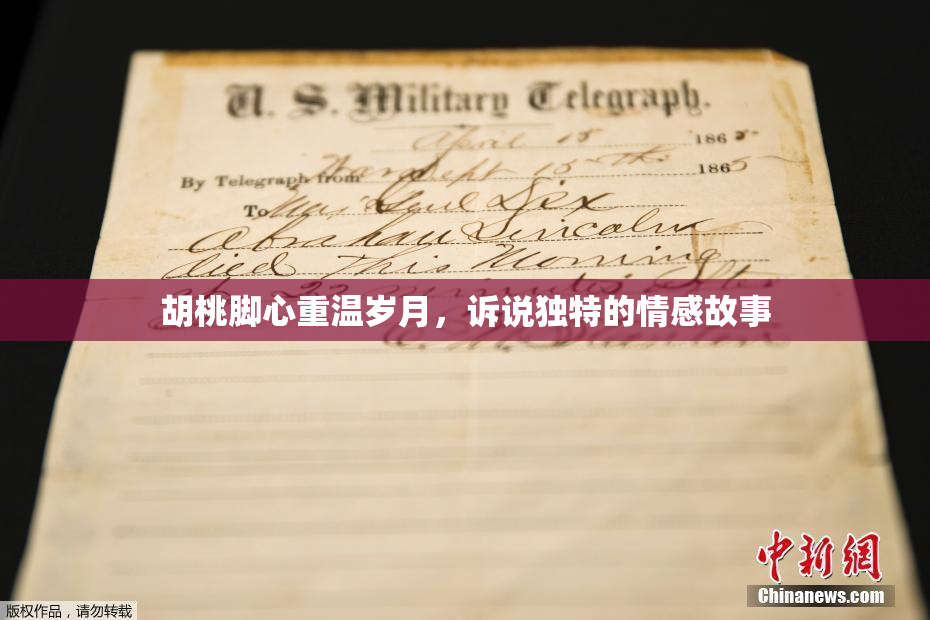 U. S. Military Telegraph.
April 15 1865
By Telegraph from War Dept 15th 1865
To Maj Genl Dix
Abraham Lincoln
died This Morning
at 22 minutes after
胡桃脚心重温岁月，诉说独特的情感故事
中新网
Chinanews.com
版权作品，请勿转载